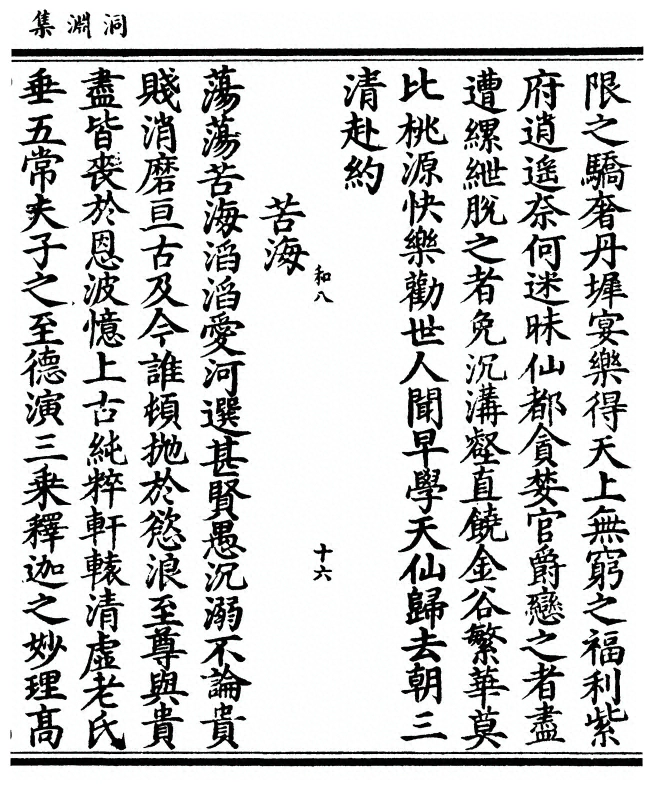 洞淵集
限之驕奢丹墀宴樂得天上無窮之福利紫
府逍遥柰何迷昧仙都貪婪官爵戀之者盡
遭縲紲脫之者免沉溝壑直饒金谷繁華莫
比桃源快樂勸世人聞早學天仙歸去朝三
清赴約
和八
十六
苦海
蕩蕩苦海滔滔愛河選甚賢愚沉溺不論貴
賤消磨亘古及今誰頓抛於慾浪至尊與貴
盡皆喪於恩波憶上古純粹軒轅清虛老氏
垂五常夫子之至德演三乘釋迦之妙理高